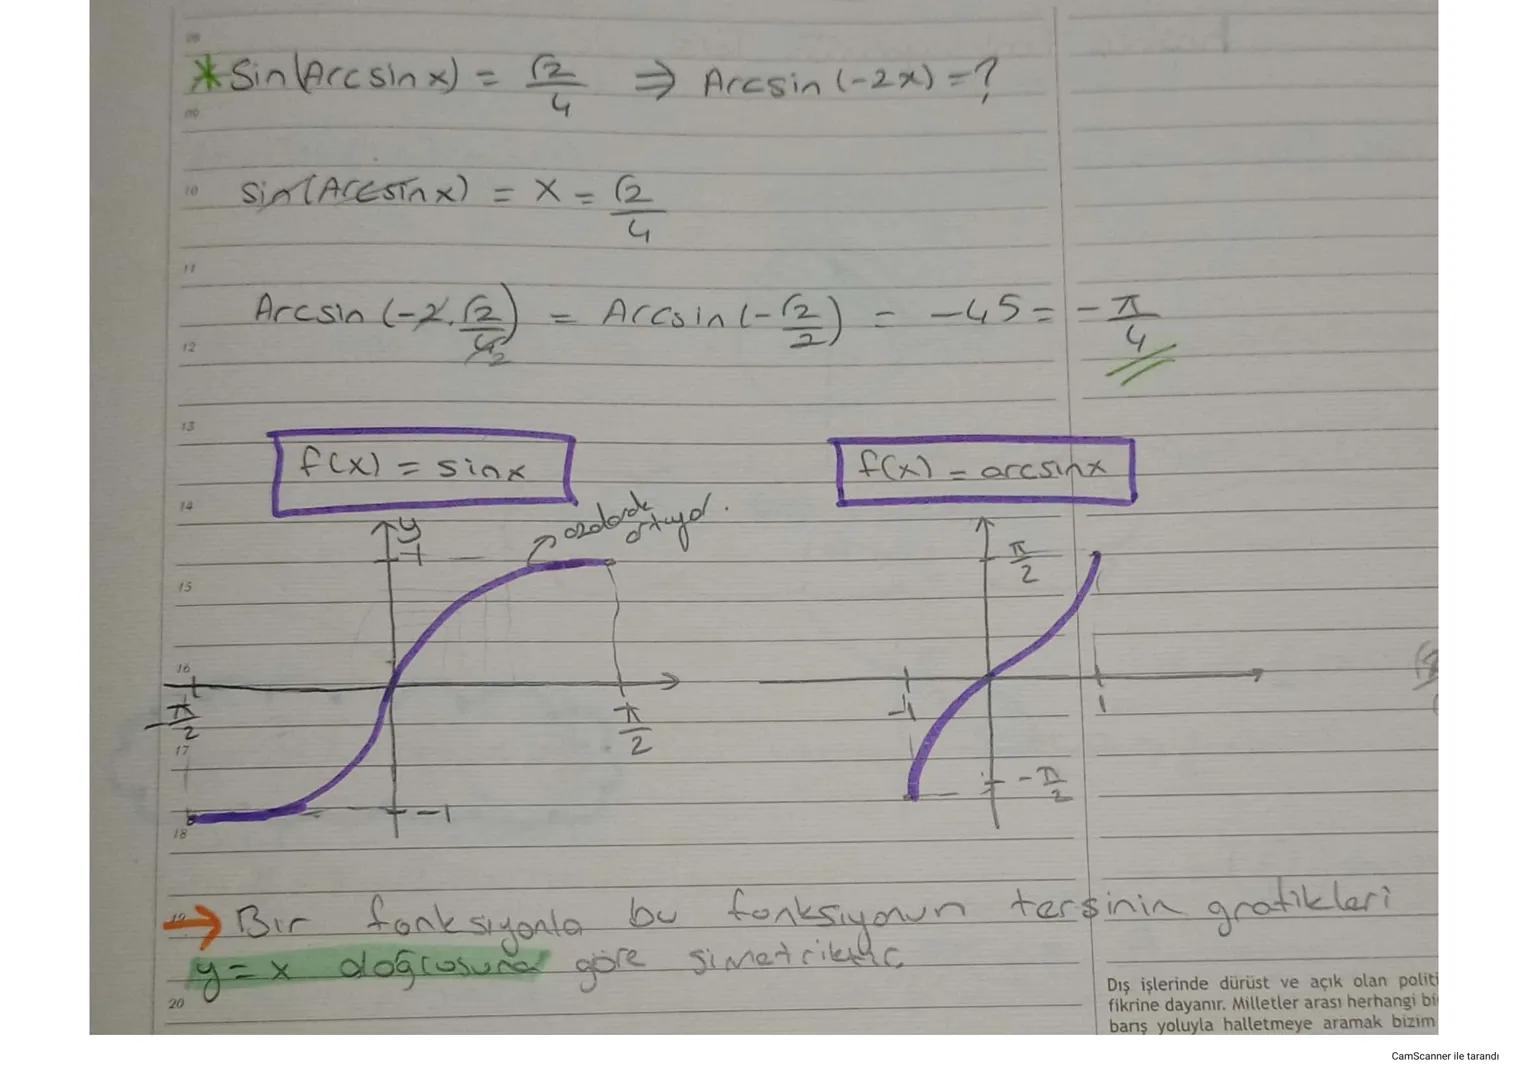 * Sin(Arcsin x) = √2/4 ⇒ Arcsin (-2x) = ?
sin(Arcsin x) = x = √2/4
Arcsin (-2.√2/4) = Arcsin (-√2/2) = -45 = -π/4
f(x) = sinx
f(x) = arcsinx
azalarak artıyor.
y
1
π/2
-π/2
π/2
-1
1
-1
-π/2
→ Bir fonksiyonla bu fonksiyonun tersinin grafikleri
y=x doğrusuna göre simetriktir
09
10
11
12
13
14
15
16
17
18
19
20
Dış işlerinde dürüst ve açık olan politi
fikrine dayanır. Milletler arası herhangi bi
barış yoluyla halletmeye aramak bizim
CamScanner ile tarandı